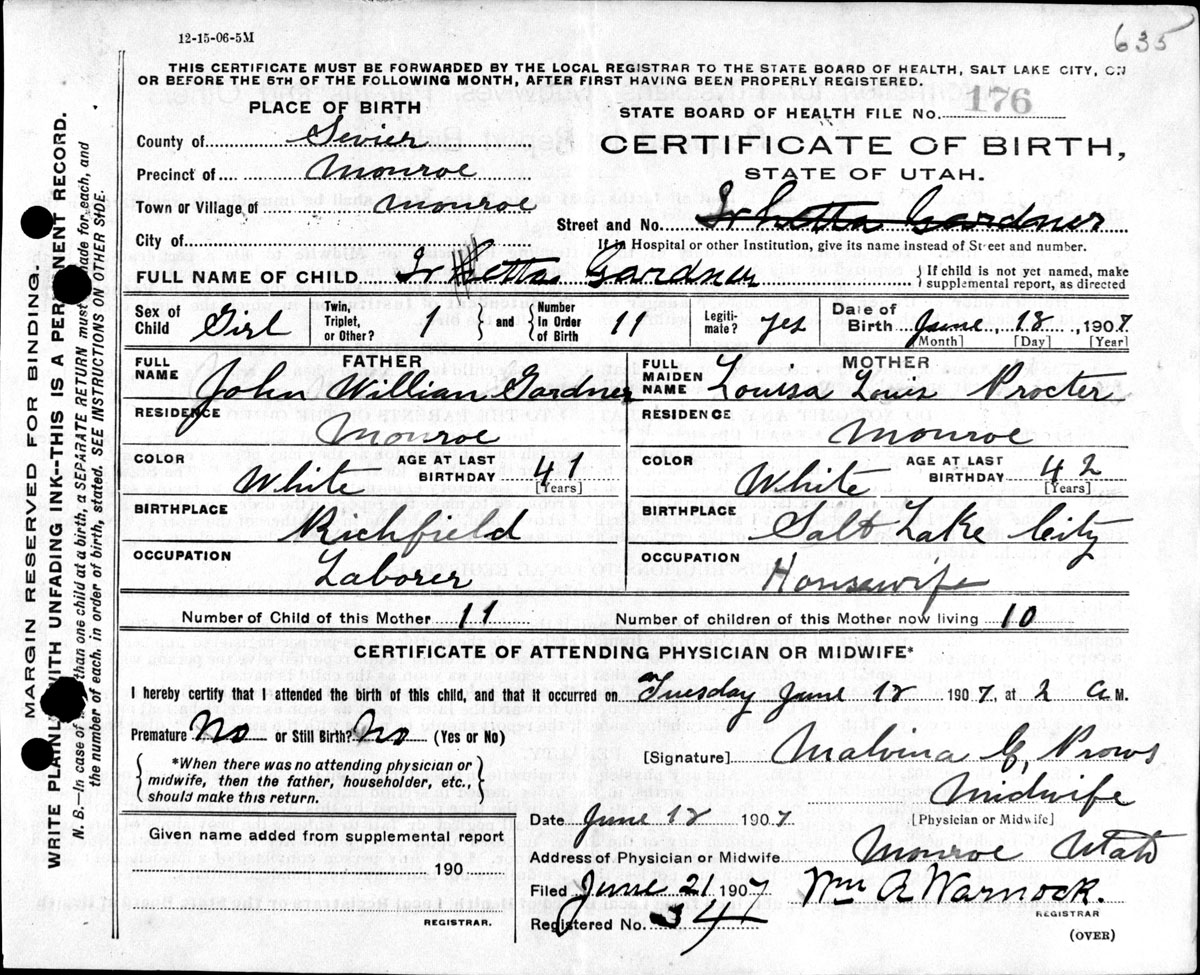 635
12-15-06-5M
THIS CERTIFICATE MUST BE FORWARDED BY THE LOCAL REGISTRAR TO THE STATE BOARD OF HEALTH, SALT LAKE CITY, ON
OR BEFORE THE 5TH OF THE FOLLOWING MONTH, AFTER FIRST HAVING BEEN PROPERLY REGISTERED.
PLACE OF BIRTH
STATE BOARD OF HEALTH FILE NO. 176
County of Sevier
CERTIFICATE OF BIRTH,
Precinct of Monroe
STATE OF UTAH.
Town or Village of Monroe
Street and No. Gardner
City of
If in Hospital or other Institution, give its name instead of Street and number.
FULL NAME OF CHILD. Gardner
{ If child is not yet named, make
supplemental report, as directed
Sex of Child Girl
Twin, Triplet, or Other? 1
} and {
Number in Order of Birth 11
Legiti-mate? Yes
Date of Birth June 18, 1907
[Month] [Day] [Year]
FATHER
FULL NAME John William Gardner
RESIDENCE
Monroe
COLOR White
AGE AT LAST BIRTHDAY 41
[Years]
BIRTHPLACE
Richfield
OCCUPATION
Laborer
MOTHER
FULL MAIDEN NAME Louisa Louis Procter
RESIDENCE
Monroe
COLOR White
AGE AT LAST BIRTHDAY 42
[Years]
BIRTHPLACE
Salt Lake City
OCCUPATION
Housewife
Number of Child of this Mother 11
Number of children of this Mother now living 10
CERTIFICATE OF ATTENDING PHYSICIAN OR MIDWIFE*
I hereby certify that I attended the birth of this child, and that it occurred on Tuesday June 18 1907, at 2 A.M.
Premature No or Still Birth? No (Yes or No)
{ *When there was no attending physician or
midwife, then the father, householder, etc.,
should make this return. }
[Signature] Malvina C. Prows
Midwife
[Physician or Midwife]
Date June 18 1907
Given name added from supplemental report
190
REGISTRAR.
Address of Physician or Midwife Monroe Utah
Filed June 21 1907 Wm A Warnock.
REGISTRAR
Registered No. 34
(OVER)
MARGIN RESERVED FOR BINDING.
WRITE PLAINLY WITH UNFADING INK--THIS IS A PERMANENT RECORD.
N. B.--In case of more than one child at a birth, a SEPARATE RETURN must be made for each, and
the number of each, in order of birth, stated. SEE INSTRUCTIONS ON OTHER SIDE.